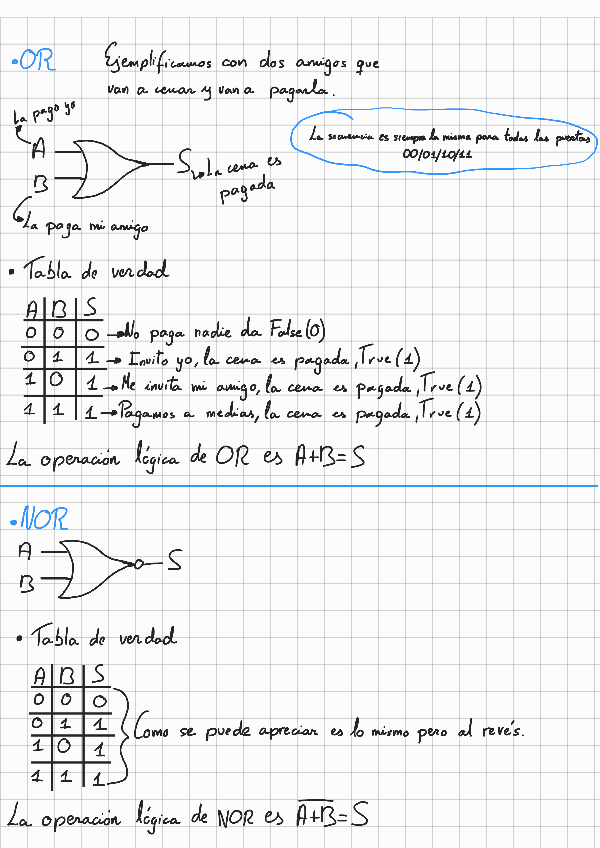 •OR
Ejemplificamos con dos amigos que
van a cenar y van a pagarla.
La pago yo
La secuencia es siempre la misma para todas las puertas
00/01/10/11
A
B
S
La cena es
pagada
La paga mi amigo
• Tabla de verdad
A B S
0 0 0 → No paga nadie da False(0)
0 1 1 → Invito yo, la cena es pagada, True(1)
1 0 1 → Me invita mi amigo, la cena es pagada, True(1)
1 1 1 → Pagamos a medias, la cena es pagada, True(1)
La operación lógica de OR es A+B=S
•NOR
A
B
S
• Tabla de verdad
A B S
0 0 0
0 1 1
1 0 1
1 1 1
Como se puede apreciar es lo mismo pero al revés.
La operación lógica de NOR es A̅+̅B̅=S